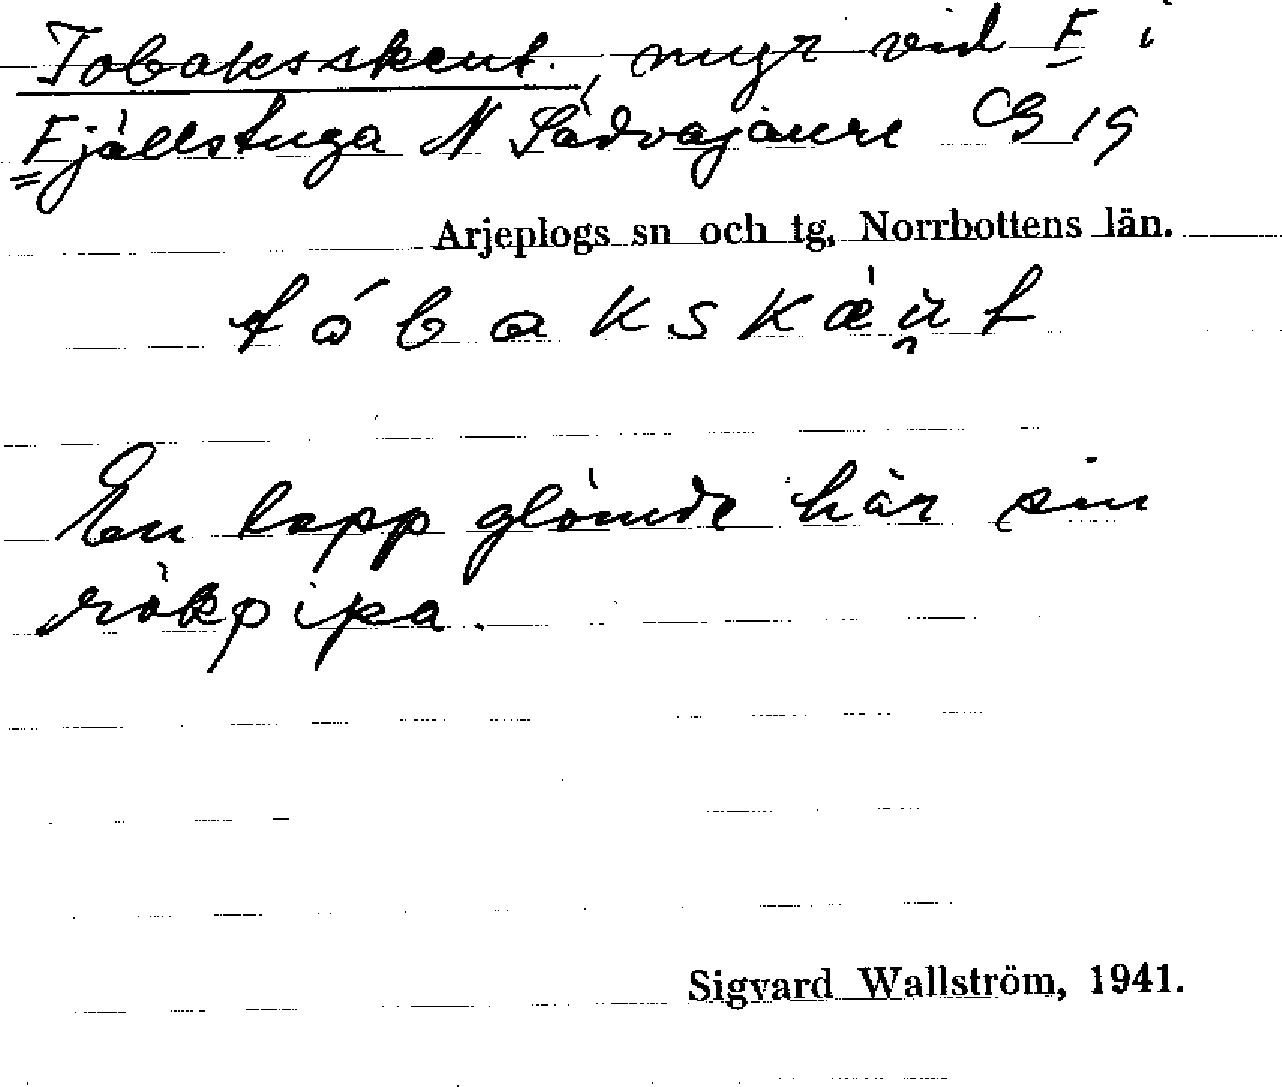 Tobaksskeut, myr vid F i
Fjällstuga N Sädvajaure CG 19
Arjeplogs sn och tg, Norrbottens län.
tóbakskæ̀u̯t
En lapp glömde här sin
rökpipa.
Sigvard Wallström, 1941.